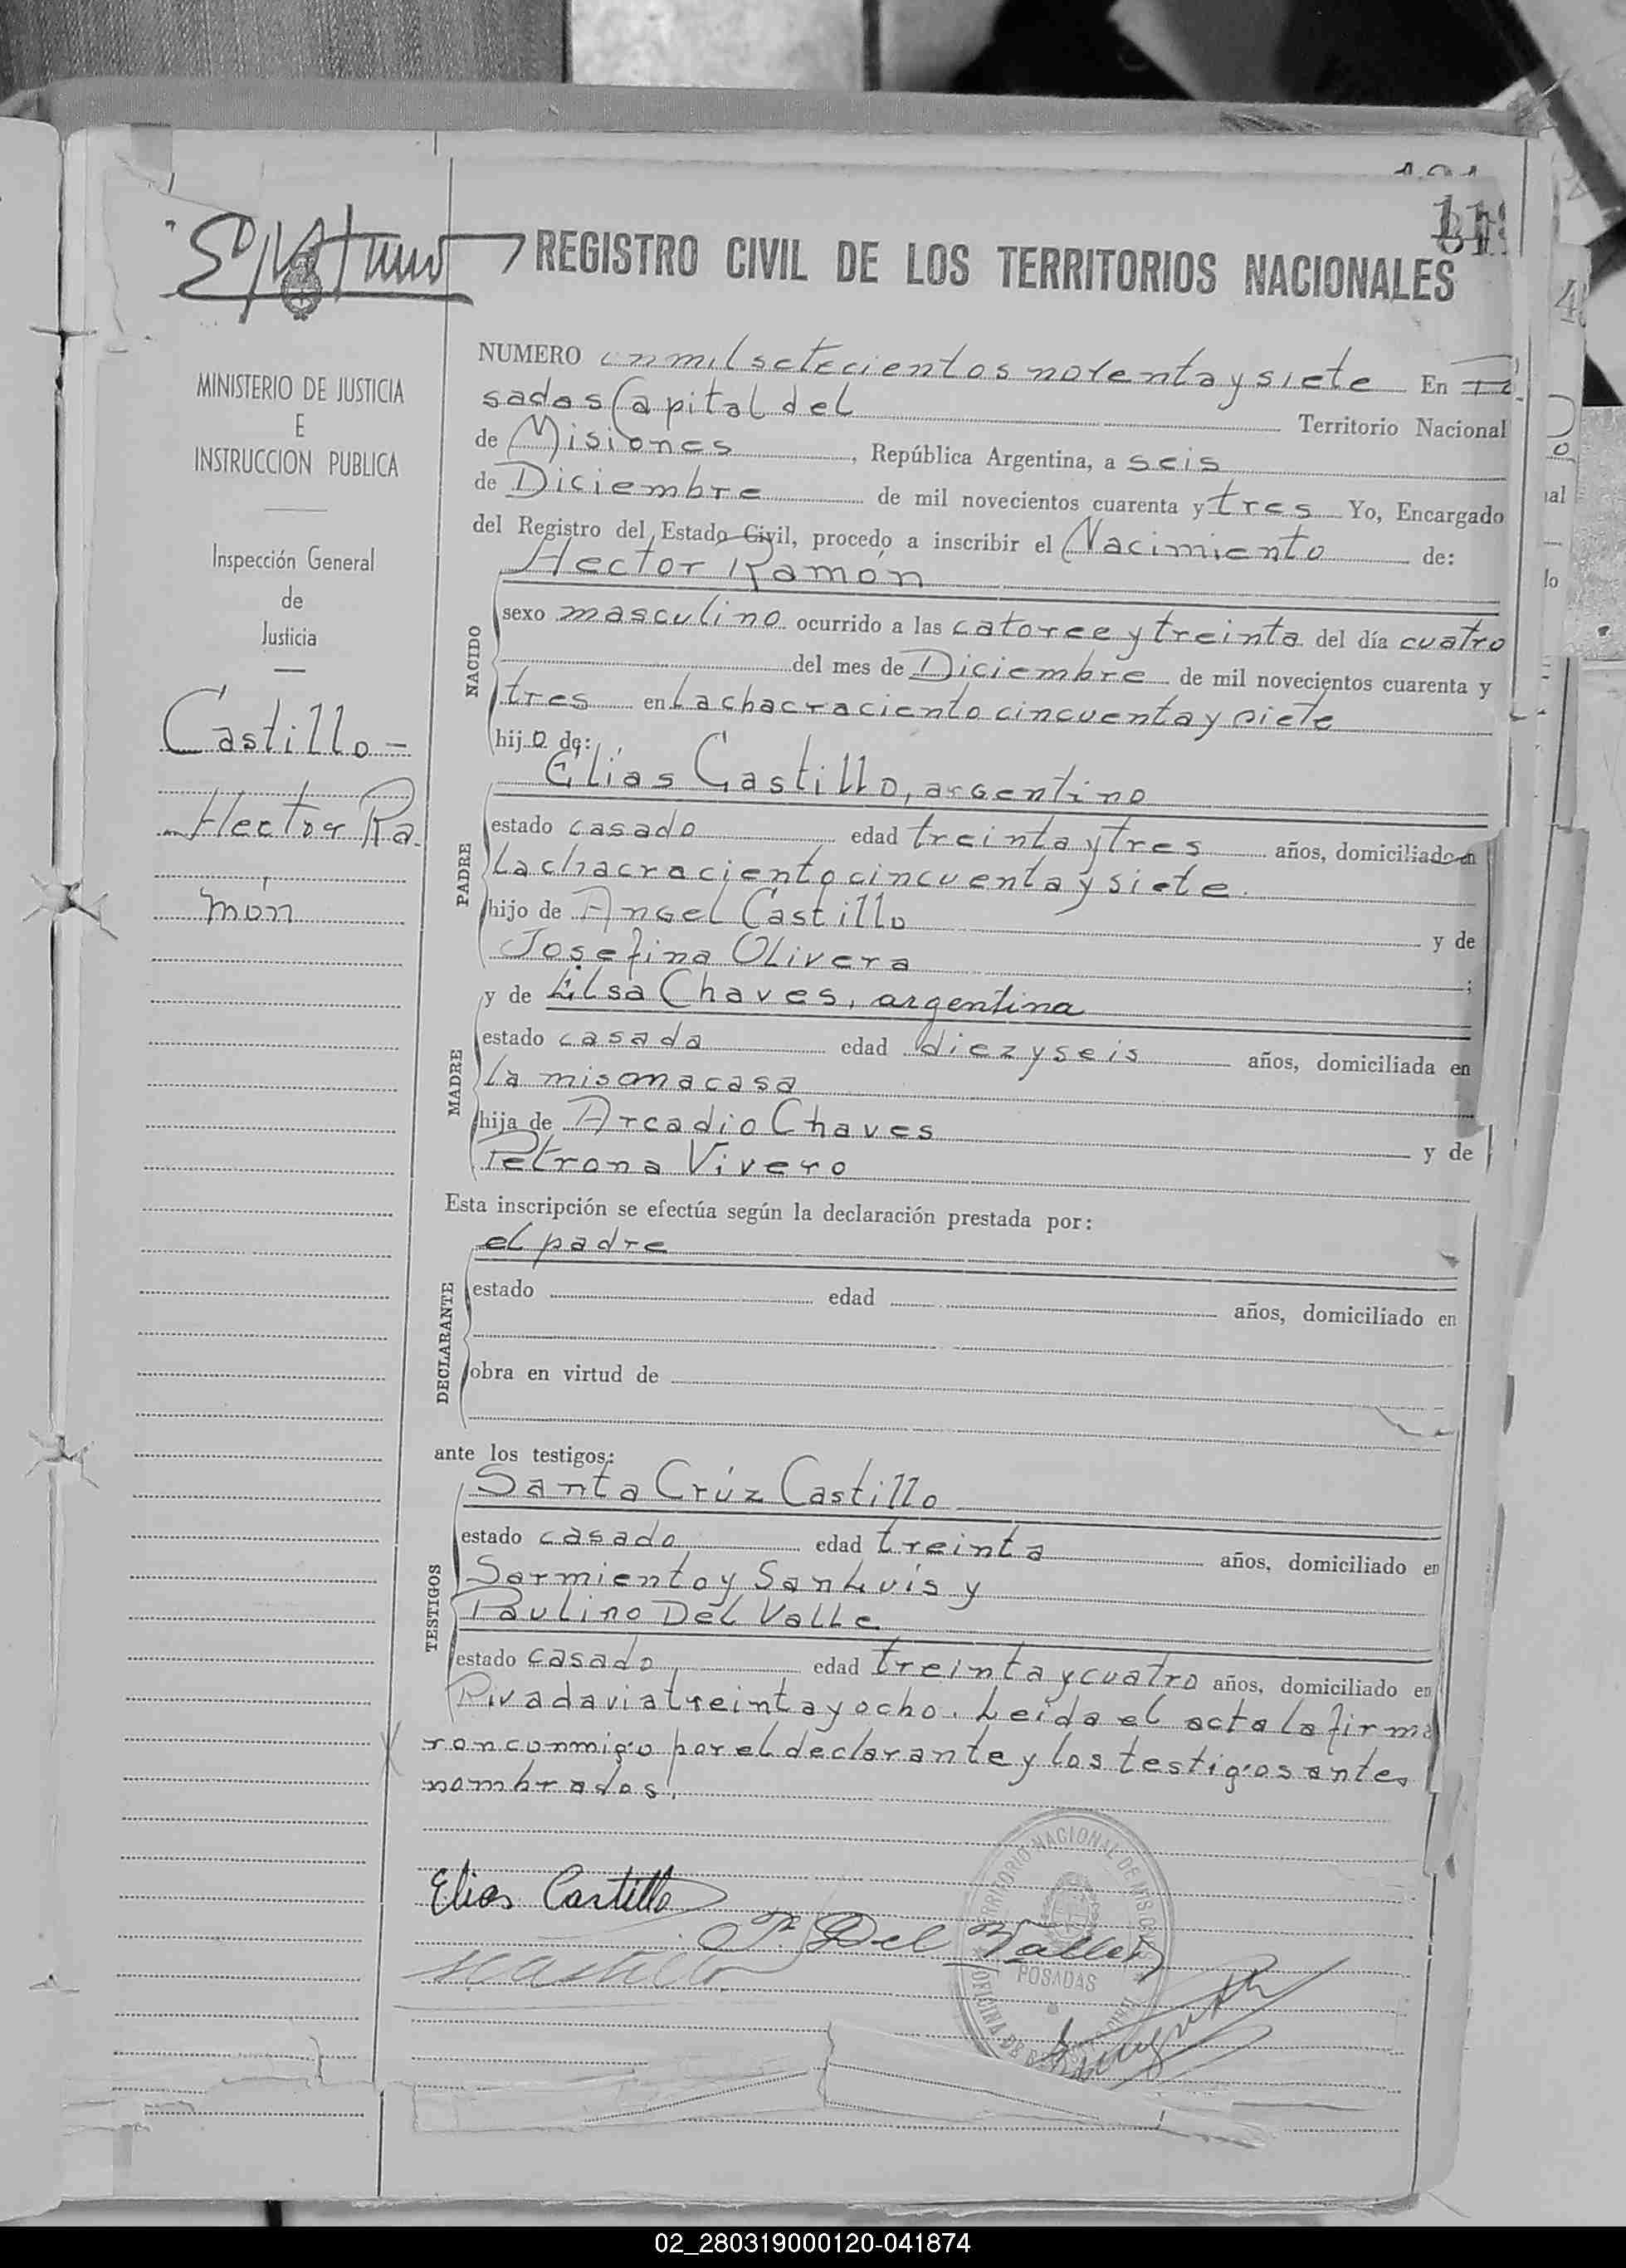 REGISTRO CIVIL DE LOS TERRITORIOS NACIONALES
MINISTERIO DE JUSTICIA
E
INSTRUCCION PUBLICA
Inspección General
de
Justicia
Castillo -
Hector Ra
món
NUMERO un mil setecientos noventa y siete En Po
sadas Capital del Territorio Nacional
de Misiones, República Argentina, a seis
de Diciembre de mil novecientos cuarenta y tres Yo, Encargado
del Registro del Estado Civil, procedo a inscribir el Nacimiento de:
Hector Ramón
NACIDO
sexo masculino ocurrido a las catorce y treinta del día cuatro
del mes de Diciembre de mil novecientos cuarenta y
tres en La chacra ciento cincuenta y siete
hijo de:
Elías Castillo, argentino
PADRE
estado casado edad treinta y tres años, domiciliado en
La chacra ciento cincuenta y siete.
hijo de Angel Castillo y de
Josefina Olivera ;
y de Elsa Chaves, argentina
MADRE
estado casada edad diez y seis años, domiciliada en
la misma casa
hija de Arcadio Chaves y de
Petrona Vivero
Esta inscripción se efectúa según la declaración prestada por:
el padre
DECLARANTE
estado edad años, domiciliado en
obra en virtud de
ante los testigos:
Santa Crúz Castillo
TESTIGOS
estado casado edad treinta años, domiciliado en
Sarmiento y San Luis y
Paulino Del Valle
estado casado edad treinta y cuatro años, domiciliado en
Rivadavia treinta y ocho. Leida el acta la firma
ron conmigo por el declarante y los testigos antes
nombrados.
Elias Castillo
P. Del Valle
S Castillo
TERRITORIO NACIONAL DE MISIONES
POSADAS
02_280319000120-041874